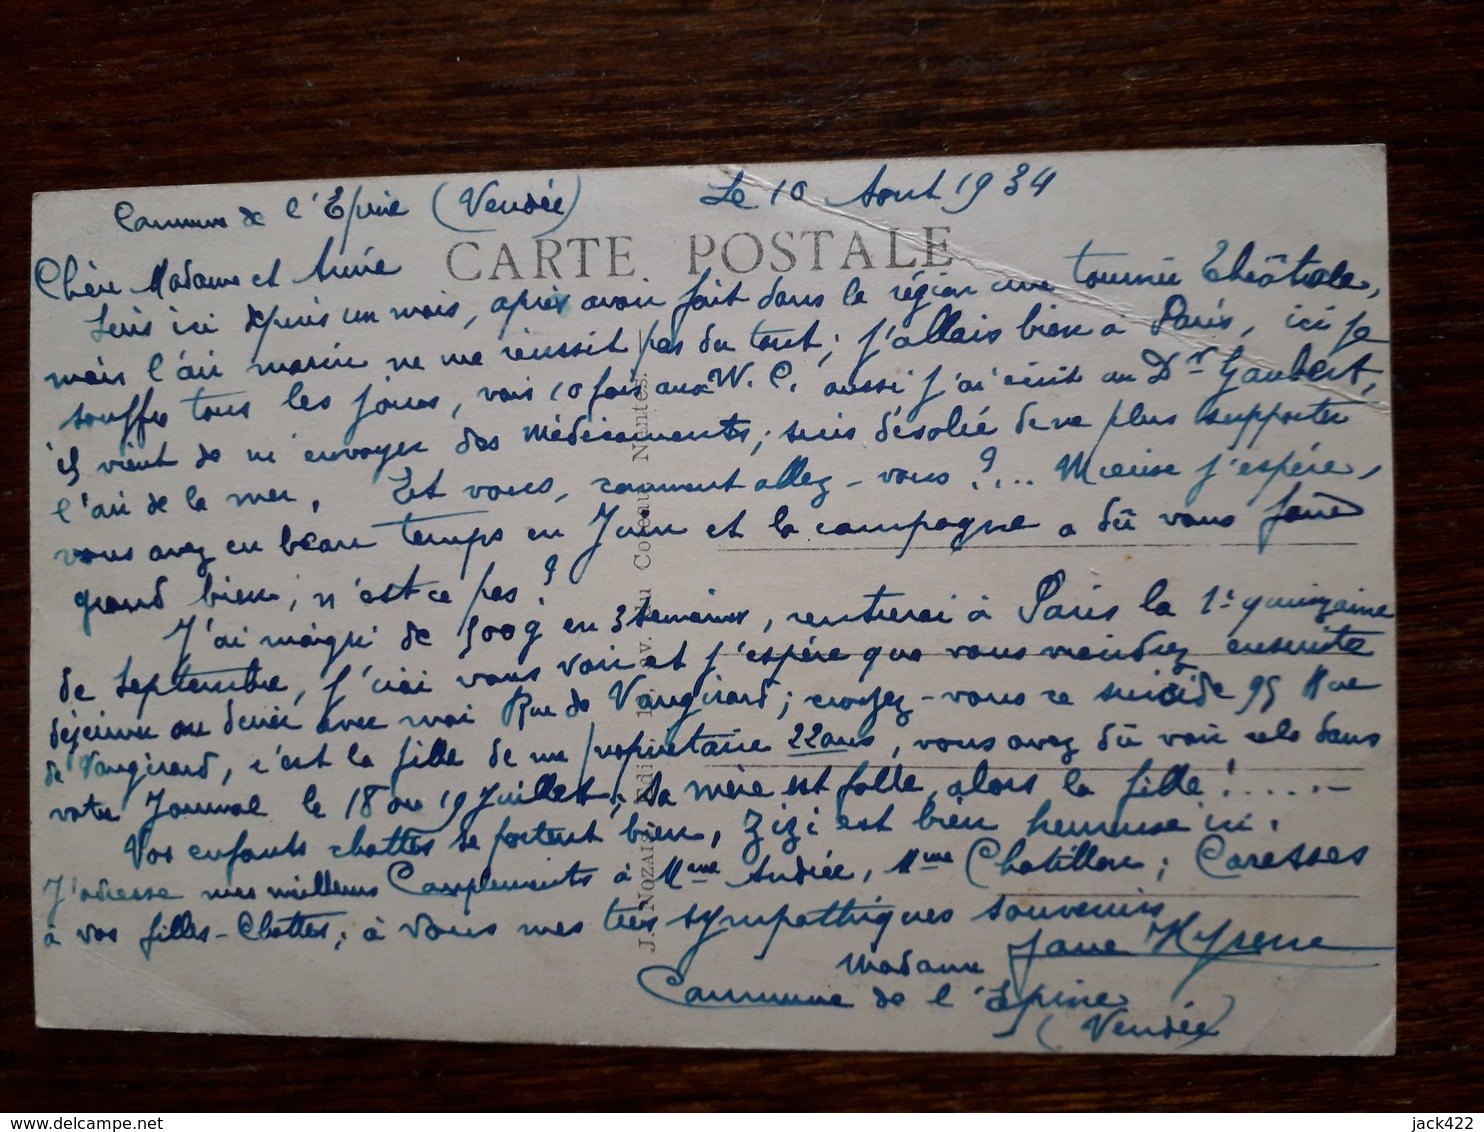 Commune de l'Epine (Vendée) Le 10 Aout 1934
CARTE POSTALE
Chère Madame et Amie
Suis ici depuis un mois, après avoir fait dans la région une tournée théâtrale,
mais l'air marin ne me réussit pas du tout; j'allais bien a Paris, ici je
souffre tous les jours, vais 10 fois aux W.C. aussi j'ai écrit au Dr Gaubert,
il vient de m'envoyer des médicaments; suis désolée de ne plus supporter
l'air de la mer. Et vous, comment allez-vous?... Mieux j'espère,
vous avez eu beau temps en Juin et la campagne a dû vous faire
grand bien, n'est ce pas?
J'ai maigri de 500g en 3 semaines, rentrerai à Paris la 1e quinzaine
de Septembre, j'irai vous voir et j'espère que vous viendrez ensuite
déjeuner ou diner avec moi Rue de Vaugirard; croyez-vous ce suicide 95 Rue
de Vaugirard, c'est la fille de ma propriétaire 22 ans, vous avez dû voir cela dans
votre Journal le 18 ou 19 Juillet; sa mère est folle, alors la fille!.....
Vos enfants chattes se portent bien, Zizi est bien heureuse ici.
J'adresse mes meilleurs Compliments à Mme Andrée, Mme Chatillon; Caresses
à vos filles-Chattes; à vous mes très sympathiques souvenirs
Madame Jane
Commune de l'Epine
(Vendée)
J. Nozais, Edit., Nantes.
jack422